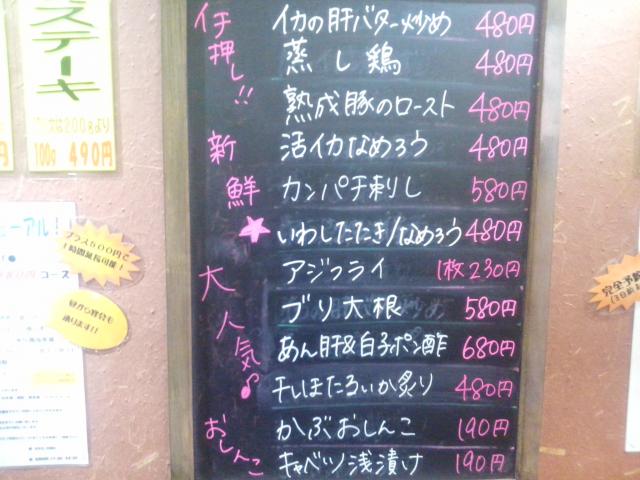 イチ押し!!
イカの肝バター炒め 480円
蒸し鶏 480円
熟成豚のロースト 480円
新鮮★
活イカなめろう 480円
カンパチ刺りし 580円
いわしたたき/なめろう 480円
大人気♪
アジフライ 1枚230円
ブリ大根 580円
あん肝&白子ポン酢 680円
干しほたるいか炙り 480円
おしんこ
かぶおしんこ 190円
キャベツ浅漬け 190円
ステーキ
は200gより
100g 490円
ューアル!
コース
プラス500円で
1時間延長可能!
昼から宴会も
承ります!!
完全予